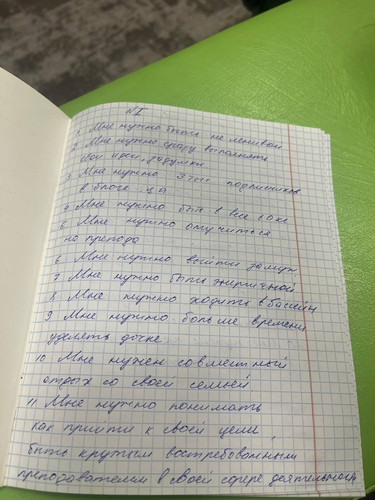 N1
1 Мне нужно быть не ленивой
2 Мне нужно сразу выполнять
свои идеи, задумки
3 Мне нужно подписчиков
в блоге
4 Мне нужно быть в
5 Мне нужно отучиться
на препода
6 Мне нужно выйти замуж
7 Мне нужно быть энергичной
8 Мне нужно ходить в басейн
9 Мне нужно больше времени
уделять дочке
10 Мне нужен совместный
отдых со своей семьей
11 Мне нужно понимать
как прийти к своей цели,
быть крутым востребованным
преподавателем в своей сфере деятельности